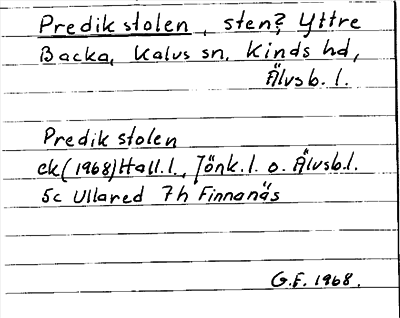 Predikstolen, sten? Yttre
Backa, Kalvs sn, Kinds hd,
Älvsb. l.
Predikstolen
ek (1968) Hall. l., Jönk. l. o. Älvsb. l.
5c Ullared 7h Finnanäs
G.F. 1968.